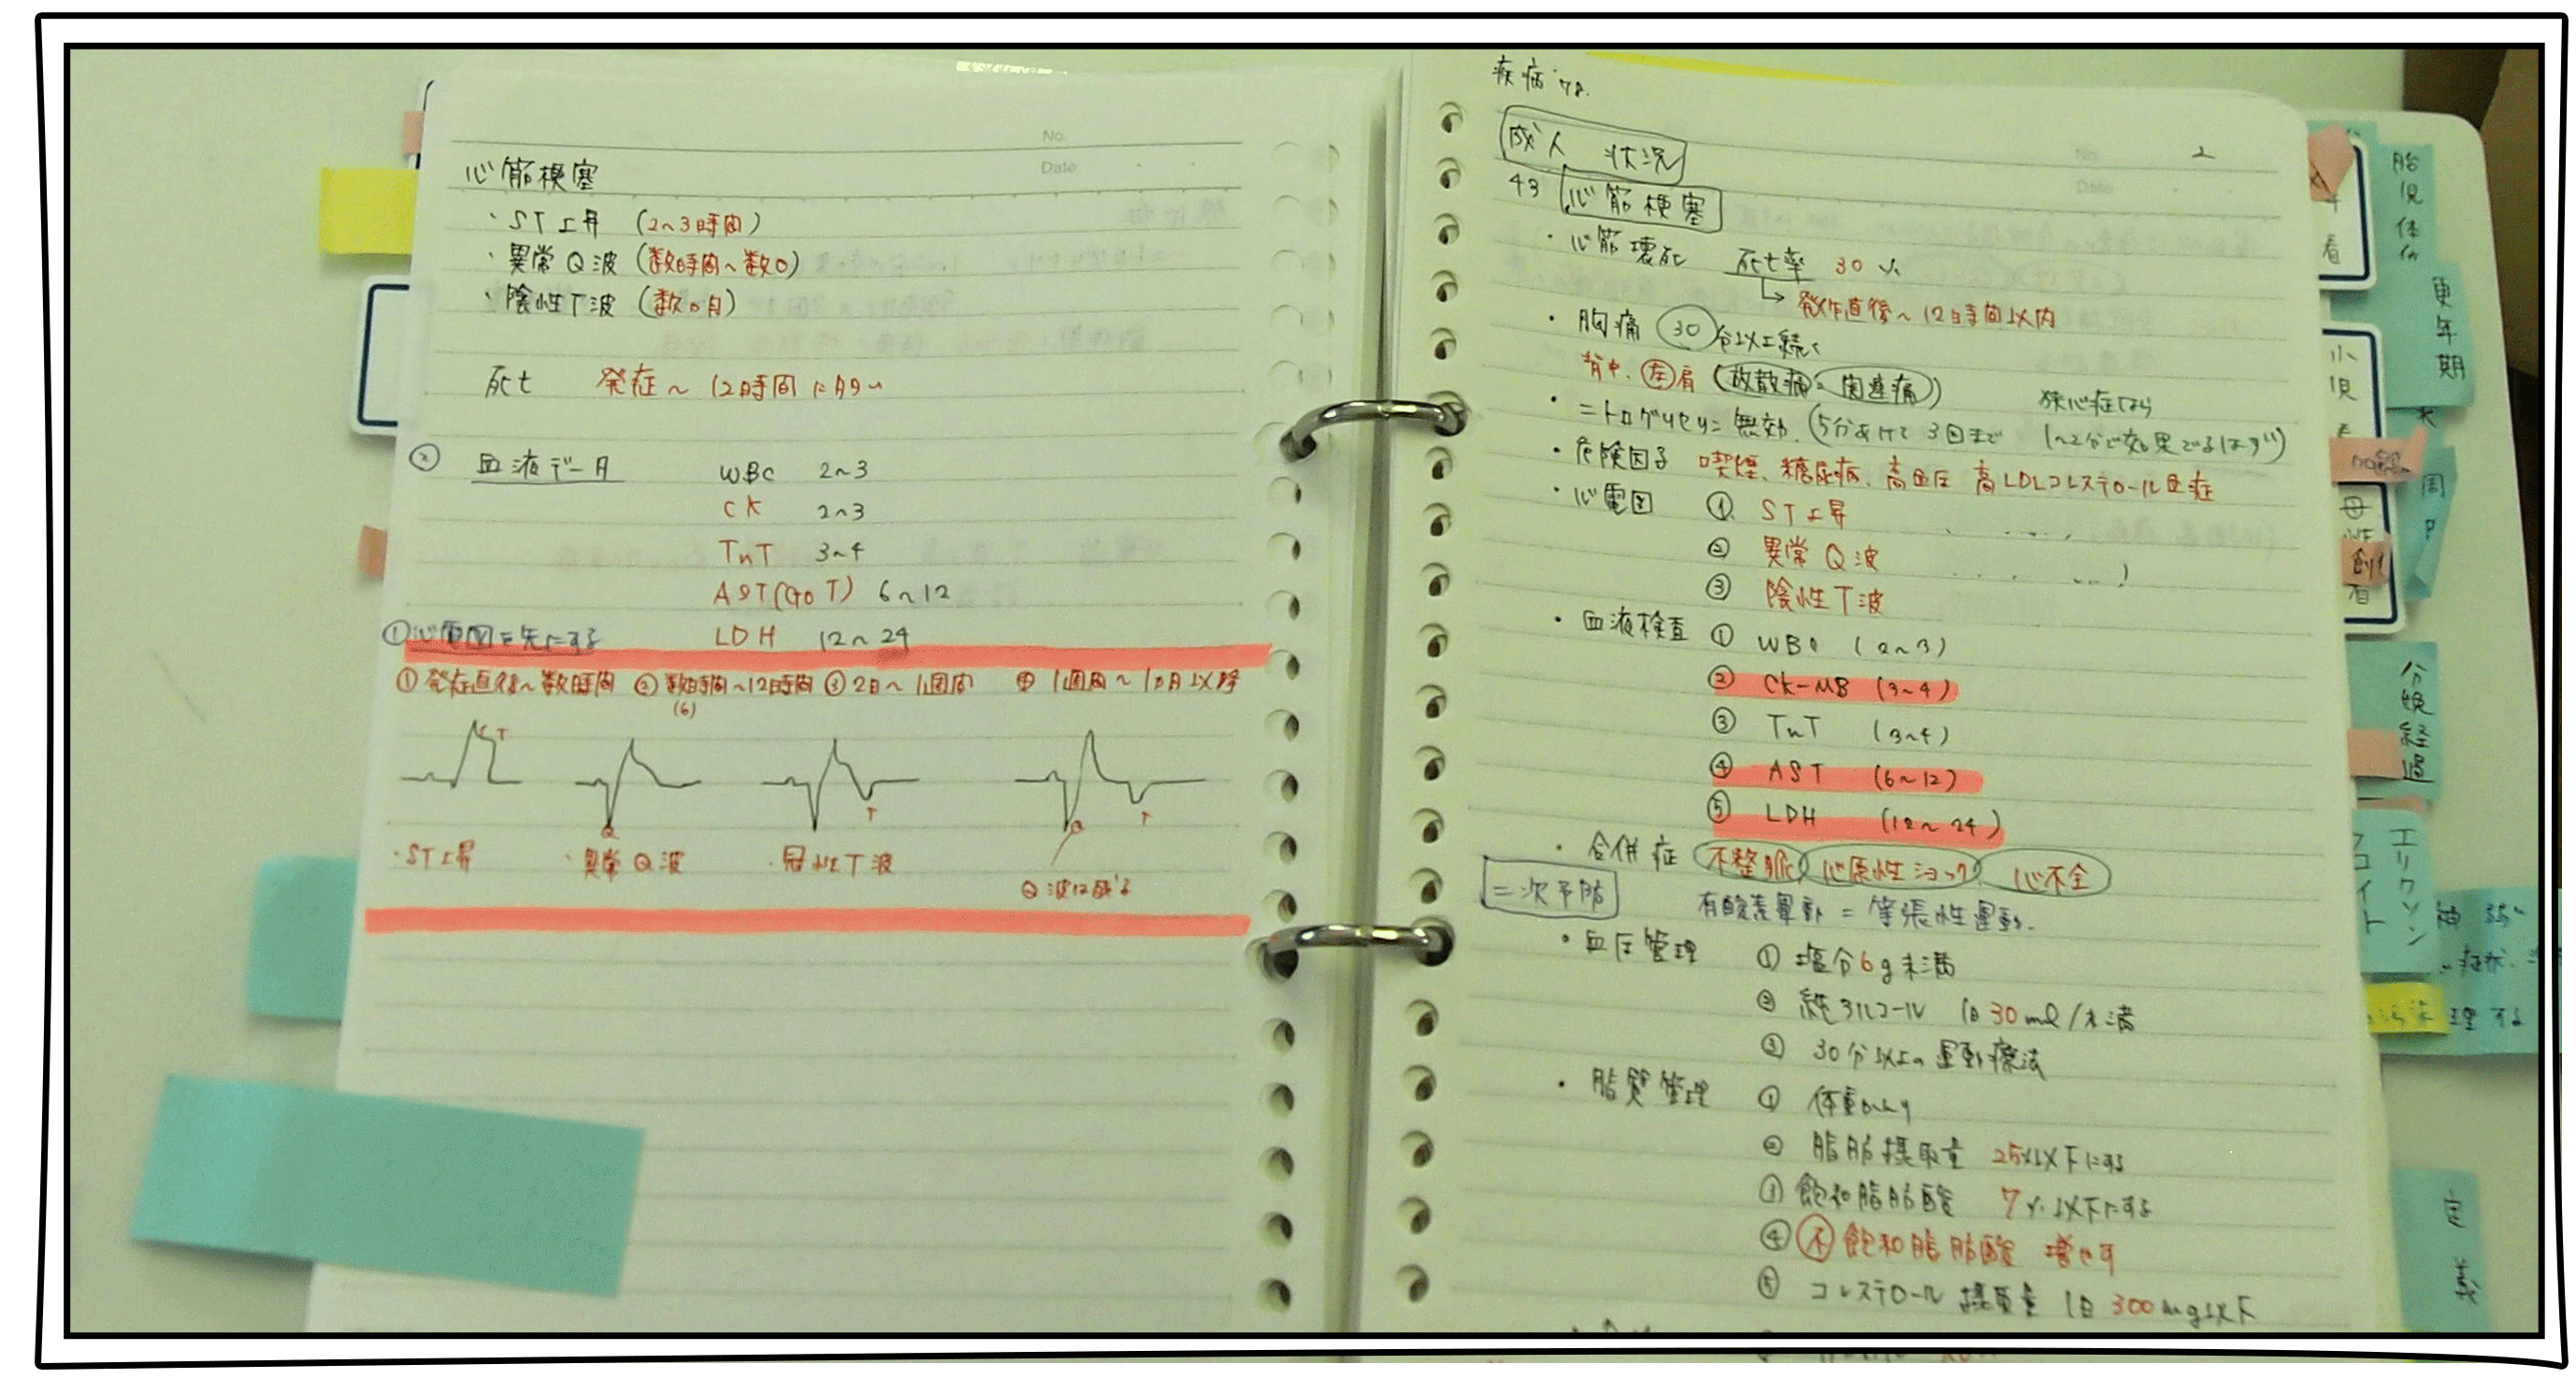 No.
Date
心筋梗塞
・ST上昇 (2~3時間)
・異常Q波 (数時間~数日)
・陰性T波 (数ヵ月)
死亡 発症~12時間に多い
② 血液データ WBC 2~3
CK 2~3
TnT 3~4
AST(GOT) 6~12
①心電図を先にする LDH 12~24
①発症直後~数時間 ②数時間~12時間 ③2日~1週間 ④1週間~1ヵ月以降
(6)
T
Q
T
Q
T
・ST上昇 ・異常Q波 ・冠性T波
Q波は残る
疾病
成人 状況
No. 2
Date
43 心筋梗塞
・心筋壊死 死亡率 30%
→発作直後~12時間以内
・胸痛 30分以上続く
背中、左肩 (放散痛・関連痛)
狭心症なら
・ニトログリセリン無効 (5分あけて3回まで 1~2分で効果でるはず)
・危険因子 喫煙、糖尿病、高血圧 高LDLコレステロール血症
・心電図 ① ST上昇
② 異常Q波
③ 陰性T波
・血液検査 ① WBC (2~3)
② CK-MB (3~4)
③ TnT (3~4)
④ AST (6~12)
⑤ LDH (12~24)
・合併症 不整脈 心原性ショック 心不全
二次予防 有酸素運動 = 等張性運動.
・血圧管理 ① 塩分6g未満
② 純アルコール 1日30ml/未満
③ 30分以上の運動療法
・脂質管理 ① 体重
② 脂肪摂取量 25%以下にする
③ 飽和脂肪酸 7%以下にする
④ 不飽和脂肪酸 増やす
⑤ コレステロール摂取量 1日300mg以下
胎児
更年期
小児
母性
周
創
分娩経過
エリクソン
フロイト
神
理する
定義